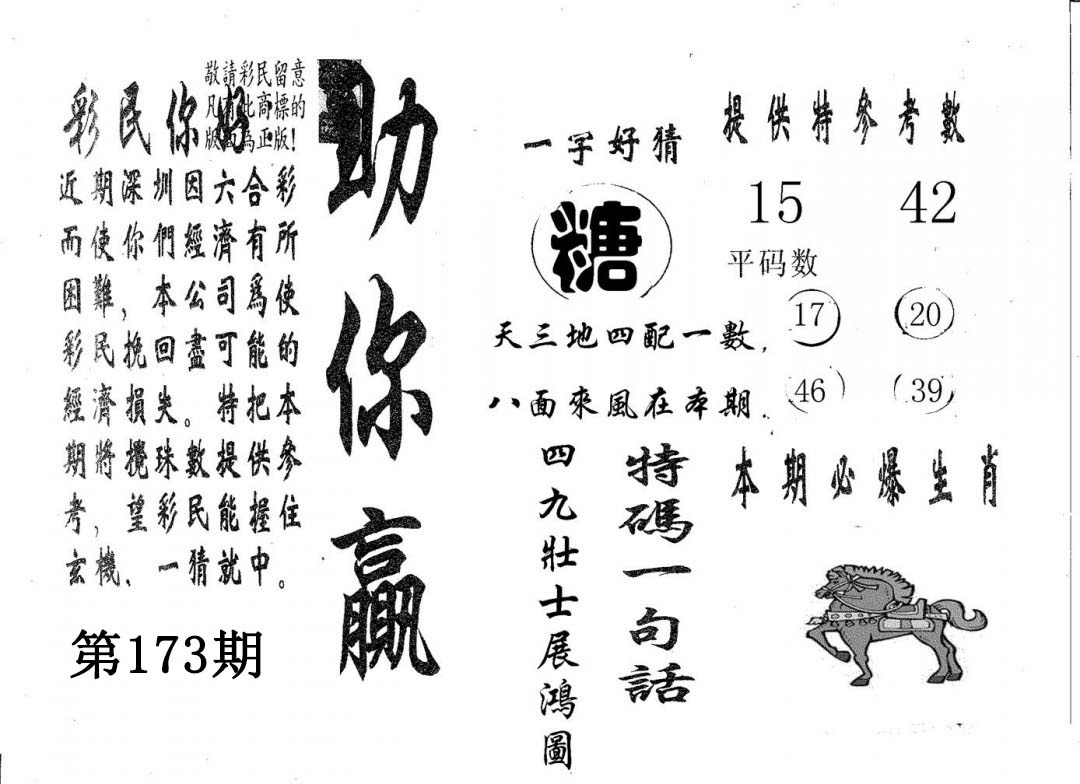 敬請彩民留意
凡有此商標的
版面為正版!
彩民你好
近期深圳因六合彩
而使你們經濟有所
困難,本公司爲使
彩民挽回盡可能的
經濟損失。特把本
期將攪珠數提供參
考,望彩民能握住
玄機、一猜就中。
第173期
助你贏
一字好猜
糖
天三地四配一數,
八面來風在本期.
四九壯士展鴻圖
特碼一句話
提供特參考數
15 42
平码数
17 20
46 39
本期必爆生肖